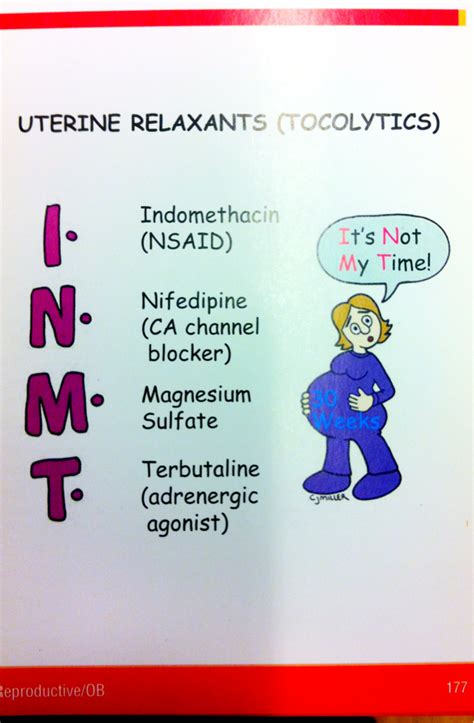 UTERINE RELAXANTS (TOCOLYTICS)
I.
Indomethacin
(NSAID)
It's Not
My Time!
N.
Nifedipine
(CA channel
blocker)
M.
Magnesium
Sulfate
30
Weeks
T.
Terbutaline
(adrenergic
agonist)
CJMILLER
Reproductive/OB
177